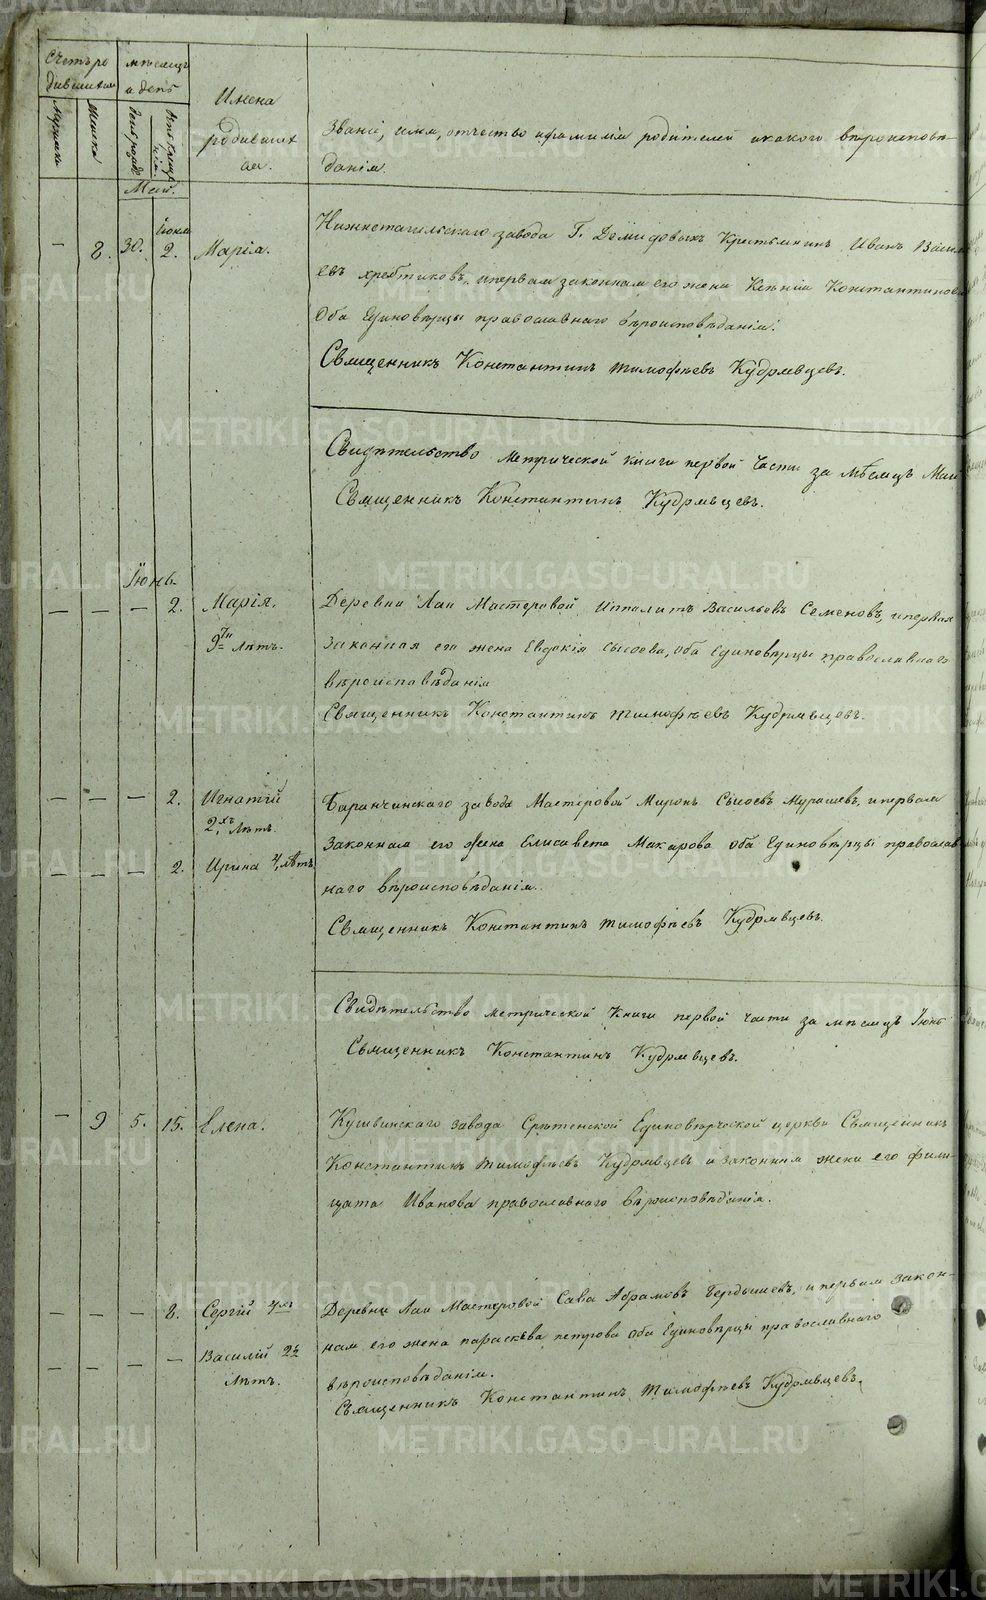 Счетъ ро
дившихся
мѣсяцъ
и день
Имена
родивших
ся.
Званіе, имя, отчество и фамилія родителей и какого вѣроисповѣ-
данія.
Мужска
Женска
рожде
крещенія
Май.
Іюня
— 8. 30. 2. Марія.
Нижнетагильскаго завода Г. Демидовыхъ Крестьянинъ Иванъ Василь
евъ Хребтиковъ, и первая законная его жена Ксенія Константинова
Оба Единовѣрцы православнаго вѣроисповѣданія.
Священникъ Константинъ Тимофѣевъ Кудрявцевъ.
Свидѣтельство метрической книги первой части за мѣсяцъ Май
Священникъ Константинъ Кудрявцевъ.
Іюнь.
— — — 2. Марія.
9ти лѣтъ.
Деревни Лаи Мастеровой Ипполитъ Васильевъ Семеновъ, и первая
законная его жена Евдокія Сысоева, оба Единовѣрцы православнаго
вѣроисповѣданія
Священникъ Константинъ Тимофѣевъ Кудрявцевъ.
— — — 2. Игнатій
2хъ лѣтъ.
— — — 2. Ирина 4, лѣтъ
Баранчинскаго завода Мастеровой Миронъ Сысоевъ Мурашевъ, и первая
законная его жена Елисавета Макарова оба Единовѣрцы православ
наго вѣроисповѣданія.
Священникъ Константинъ Тимофѣевъ Кудрявцевъ.
Свидѣтельство метрической Книги первой части за мѣсяцъ Іюнь
Священникъ Константинъ Кудрявцевъ.
— 9 5. 15. Елена.
Кушвинскаго завода Срѣтенской Единовѣрческой церкви Священникъ
Константинъ Тимофѣевъ Кудрявцевъ и законная жена его фили-
цата Иванова православнаго вѣроисповѣданія.
— — — 8. Сергій 4хъ
— — — — Василій 2хъ
лѣтъ.
Деревни Лаи Мастеровой Сава Абрамовъ Бердышевъ, и первая закон-
ная его жена параскева петрова оба Единовѣрцы православнаго
вѣроисповѣданія.
Священникъ Константинъ Тимофѣевъ Кудрявцевъ.
METRIKI.GASO-URAL.RU